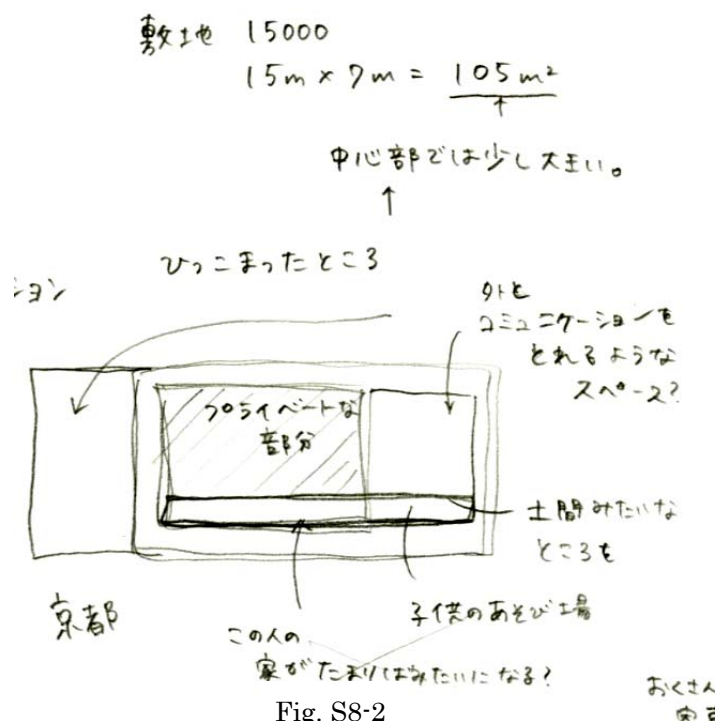 敷地 15000
15m × 7m = 105m²
↑
中心部では少し大きい。
↑
ひっこまったところ
ション
外と
コミュニケーションを
とれるような
スペース?
プライベートな
部分
土間みたいな
ところを
京都
子供のあそび場
この人の
家がたまりばみたいになる?
おくさん
Fig. S8-2